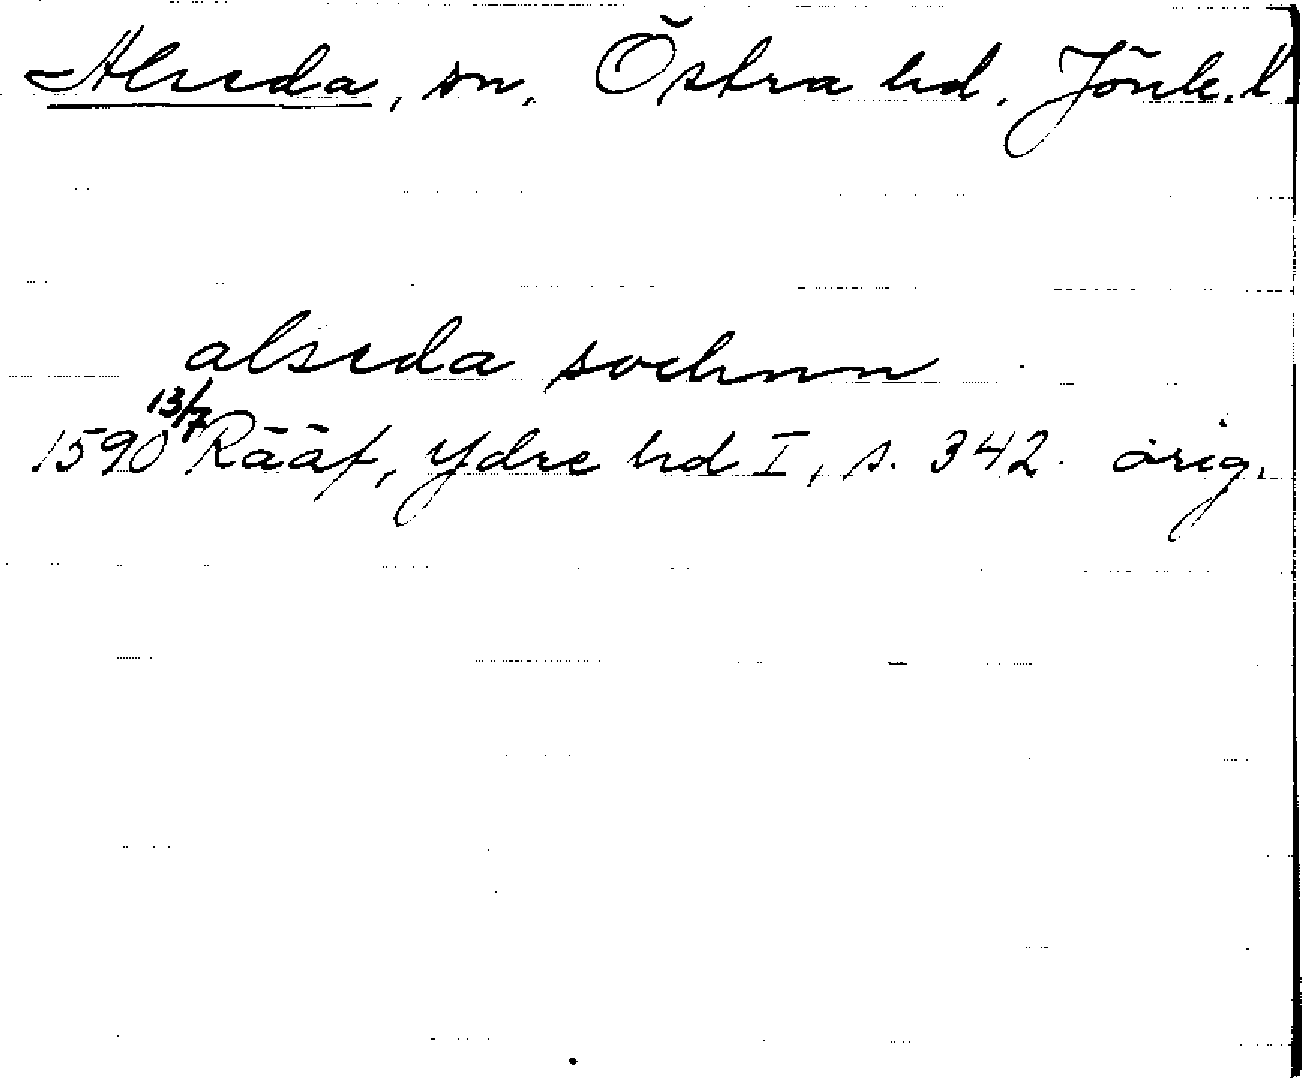 Alseda, sn. Östra hd. Jönk. l.
alseda sochnn
1590 13/7 Rääf, Ydre hd I, s. 342. orig.